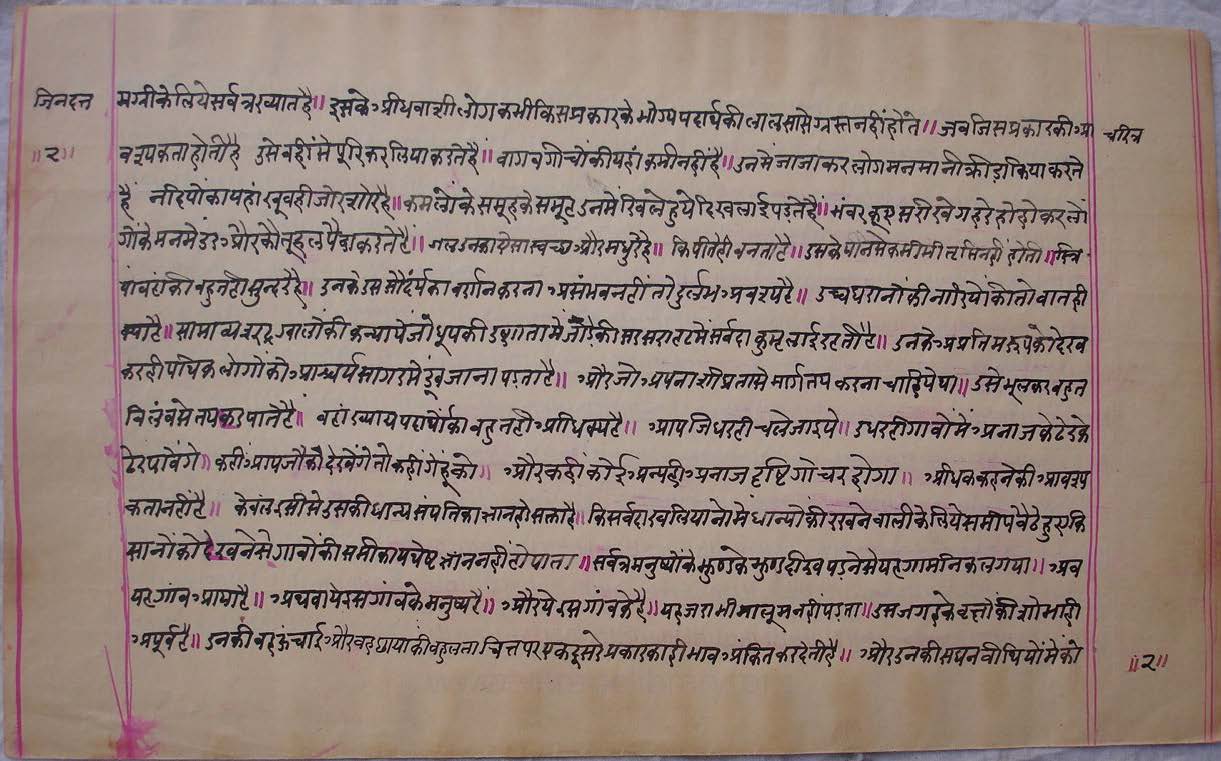 जिनदत्त मग्रीके लिये सर्वत्र ख्यात है॥ इसके अधिवाशी लोग कभी किस प्रकारके भोग्य पदार्थकी लालसासे ग्रस्त नहीं होते॥ जब जिस प्रकारकी आ चरित्र
॥२॥ वश्यकता होती है उसे वहींसे पूरि कर लिया करते है॥ वाग वगीचोंकी यहां कमी नहीं है॥ उनमें जाजा कर लोग मनमानी क्रीड़ा किया करते
हैं नदियोंका यहां खूबही जोर शोर है॥ कमलोंके समूहके समूह उनमें खिले हुये दिखलाई पड़ते है॥ भंवर कूए सरीखे गहरे हो होकर लो
गोंके मनमें डर और कौतूहल पैदा करते है॥ जल उनका ऐसा स्वच्छ और मधुर है॥ कि पीतेही वनता है॥ उसके पीनेसे कभीभी तृप्ति नहीं होती॥ स्त्रि
यां वहांकी बहुतही सुन्दर है॥ उनके उस सौदर्यका वर्णन करना असंभव नहीं तो दुर्लभ अवश्य है॥ उच्च घरानोंकी नारियोंकी तो वातही
क्या है॥ सामान्य शूद्र ग्वालोंकी कन्यायें जो धूपकी उष्णतामें सर्वदा कुम्हलाई रहती है॥ उनके अप्रतिम रूपको देख
करही पथिक लोगोंको आश्चर्य सागरमें डूब जाना पडता है॥ और जो अपना शीघ्रतासे मार्ग तय करना चाहिये था॥ उसे भूलकर बहुत
विलंबसे तय कर पाते है॥ वहां खाद्य पदार्थोंका बहुतही आधिक्य है॥ आप जिधरही चले जाइये॥ उधरही गावोंमें अनाजके ढेरके
ढेर पावेंगे॥ कहीं आप जौको देखेंगे तो कहीं गेंहूंको॥ और कहीं कोई अन्यही अनाज दृष्टि गोचर होगा॥ अधिक कहनेकी आवश्य
कता नहीं है॥ केवल इसीसे उसकी धान्य संपत्तिका ज्ञान हो सक्ता है॥ कि सर्वदा खलियानोंमें धान्योंकी रखनेवालीके लिये समीप बैठे हुए कि
सानोंको देखनेसे गावोंकी समीका यथेष्ट ज्ञान नहीं हो पाता॥ सर्वत्र मनुष्योंके झुण्डके झुण्ड दीख पडनेसे यह गाम निकल गया॥ अब
यह गांव आया है॥ अथवा ये इस गांवके मनुष्य है॥ और ये इस गांवके है॥ यह जराभी मालूम नहीं पडता॥ उस जगहके वृक्षोंकी शोभाही
अपूर्व है॥ उनकी वह ऊंचाई और वह छायाकी बहुलता चित्त पर एक दूसरे प्रकारकाही भाव अंकित कर देती है॥ और उनकी सघन वीथियोंमें को
॥२॥